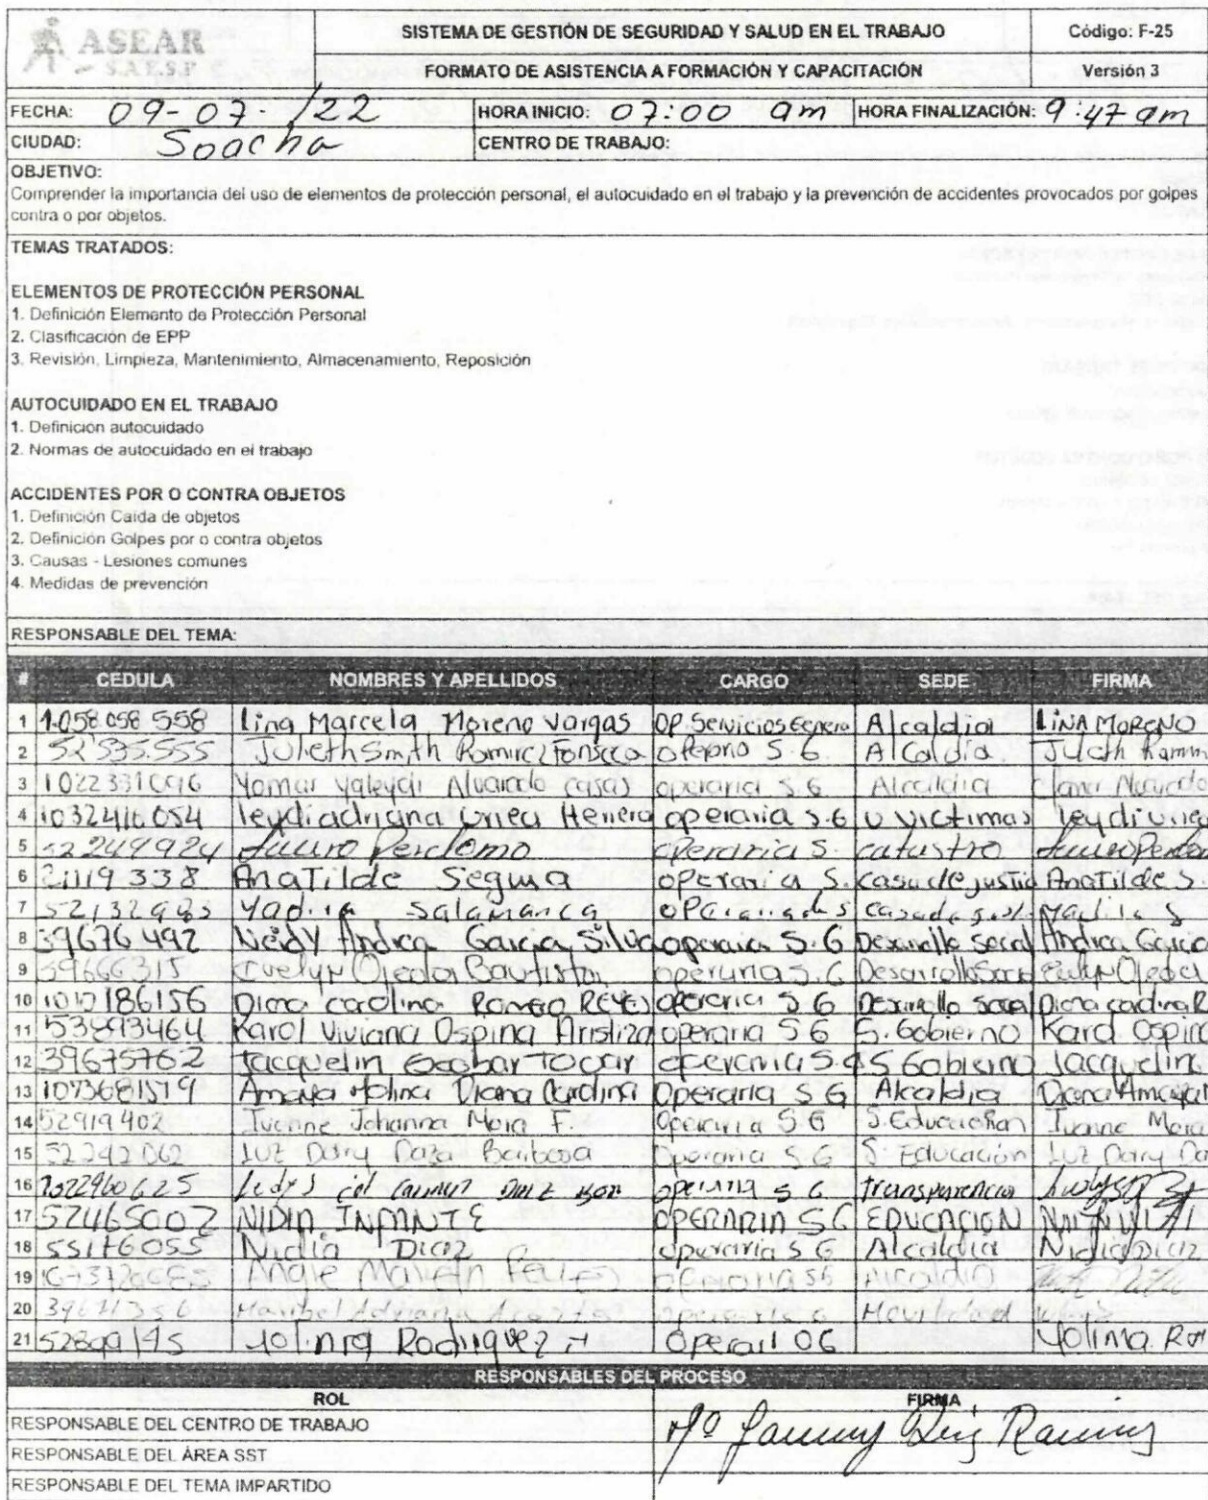 ASEAR
S.A E.S.P
SISTEMA DE GESTIÓN DE SEGURIDAD Y SALUD EN EL TRABAJO
Código: F-25
FORMATO DE ASISTENCIA A FORMACIÓN Y CAPACITACIÓN
Versión 3
FECHA: 09-07-/22 HORA INICIO: 07:00 am HORA FINALIZACIÓN: 9:47 am
CIUDAD: Soacha CENTRO DE TRABAJO:
OBJETIVO:
Comprender la importancia del uso de elementos de protección personal, el autocuidado en el trabajo y la prevención de accidentes provocados por golpes
contra o por objetos.
TEMAS TRATADOS:
ELEMENTOS DE PROTECCIÓN PERSONAL
1. Definición Elemento de Protección Personal
2. Clasificación de EPP
3. Revisión, Limpieza, Mantenimiento, Almacenamiento, Reposición
AUTOCUIDADO EN EL TRABAJO
1. Definición autocuidado
2. Normas de autocuidado en el trabajo
ACCIDENTES POR O CONTRA OBJETOS
1. Definición Caída de objetos
2. Definición Golpes por o contra objetos
3. Causas - Lesiones comunes
4. Medidas de prevención
RESPONSABLE DEL TEMA:
# CEDULA NOMBRES Y APELLIDOS CARGO SEDE FIRMA
1 1.058.058.558 Lina Marcela Moreno Vargas OP. Servicios Genera Alcaldia LINA MORENO
2 52'535.555 Julieth Smith Ramirez Fonseca operario S.G. Alcaldía
3 Yomar Alvarado operaria S.G Alcaldia
4 1032410054 leydi adriana Urrea Herrera operaria S.G U victimas leydi urrea
5 Perdomo operaria S. catastro
6 21119338 Ana Tilde Segura operaria S. casa de justia Ana Tilde S.
7 Yadira Salamanca casa de
8 39676492 Neidy Andrea Garcia Silva operaria S.G Desarrollo Social Andrea Garcia
9 39666315 Evelyn Ojeda Bautista operaria S.G Desarrollo Social Evelyn Ojeda
10 186156 Diana carolina Romero REYES operaria S G Desarrollo Social Diana carolina R
11 53893464 Karol Viviana Ospina Aristiza operaria S G S. Gobierno Karol Ospina
12 39675762 Jacquelin Escobar Tovar operaria S.G S Gobierno Jacquelin
13 1073681579 Amaya Molina Diana Carolina Operaria S G Alcaldia Diana Amaya
14 52919402 Ivonne Johanna Mora F. Operaria S G Ivonne Mora
15 52242062 Luz Dary Daza Barbosa Operaria S G S. Educación Luz Dary Da
16 del operaria S G transparencia
17 52465002 NIDIA INFANTE OPERARIA S G EDUCACION
18 55176055 Nidia Diaz operaria S G Alcaldia Nidia Diaz
19 Angie operaria S G Alcaldia
20 Maribel Adriana Movilidad
21 52899145 Yolima Rodriguez Yolima Ro
RESPONSABLES DEL PROCESO
ROL FIRMA
RESPONSABLE DEL CENTRO DE TRABAJO
RESPONSABLE DEL ÁREA SST
RESPONSABLE DEL TEMA IMPARTIDO